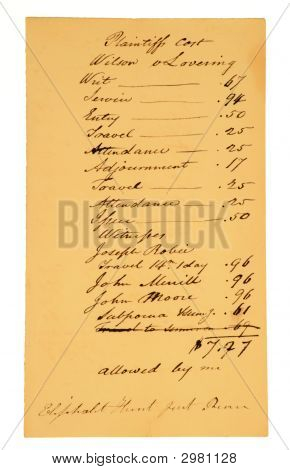 Plaintiffs Cost
Wilson v Lovering
Writ .67
Service .94
Entry .50
Travel .25
Attendance .25
Adjournment .17
Travel .25
Attendance .25
.50
Witnesses
Joseph Robie
Travel 14m 1 day .96
John Merrill .96
John Moore .96
Subpoena .61
Travel to
$7.27
allowed by me
Eliphalet Hunt Just
Bigstock®
bigstock.com · 2981128